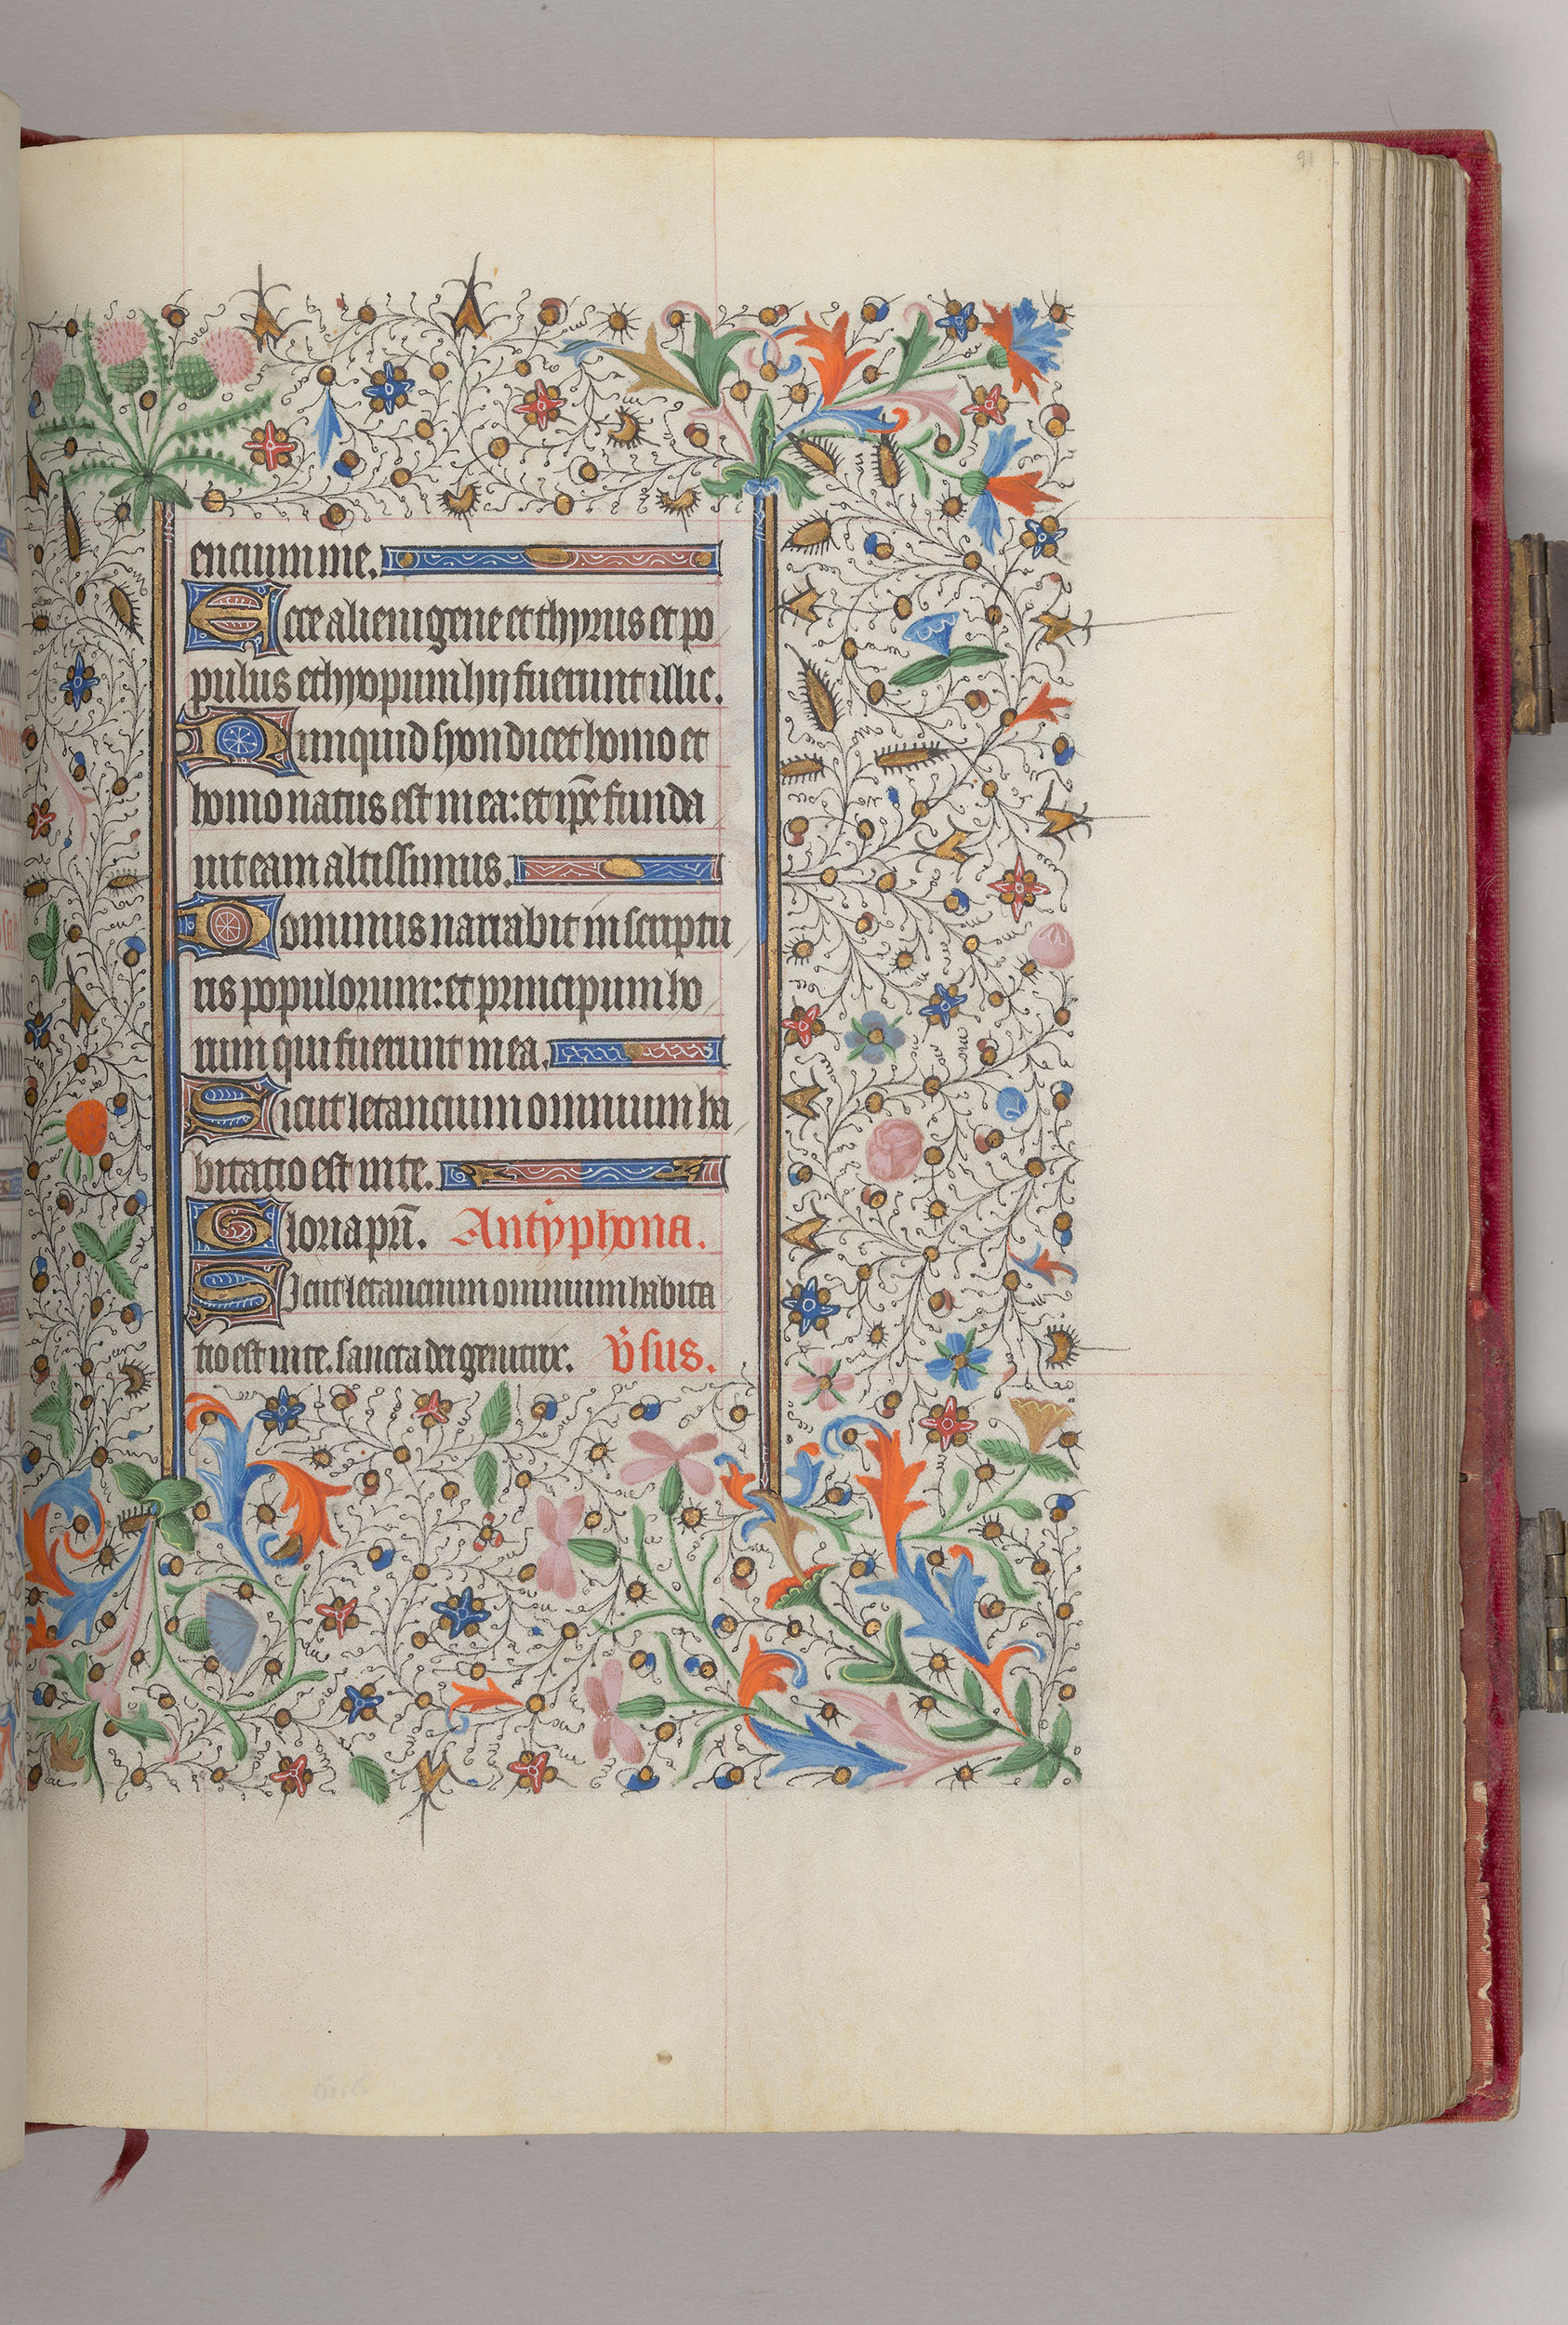 91
encium me.
Ecce alienigene et thyrus et po
pulus ethyopum hij fuerunt illic.
Numquid syon dicet homo et
homo natus est in ea: et ip̅e funda
uit eam altissimus.
Dominus narrabit in scriptu
ris populorum: et principum ho
rum qui fuerunt in ea.
Sicut letancium omnium ha
bitatio est in te.
Gloria pr̅i. Antyphona.
Sicut letancium omnium habita
tio est in te. sancta dei genitrix. V̅sus.